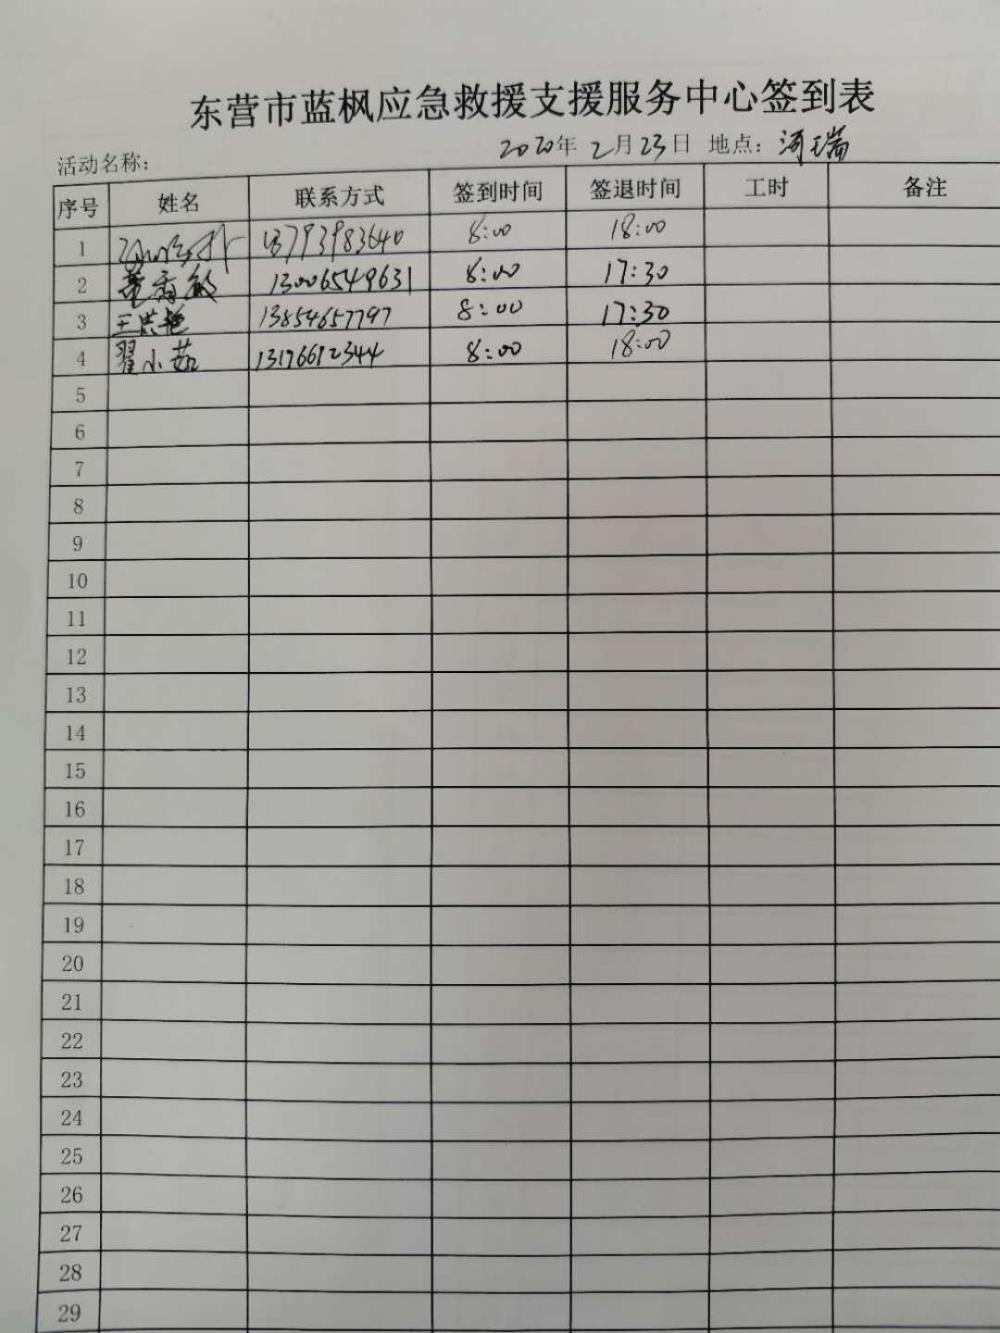 东营市蓝枫应急救援支援服务中心签到表
活动名称： 2020年 2月23日 地点：河瑞
序号 姓名 联系方式 签到时间 签退时间 工时 备注
1 13793983640 8:00 18:00
2 董香敏 13006549631 8:00 17:30
3 王洪艳 13854657797 8:00 17:30
4 翟小茹 13176612344 8:00 18:00
5
6
7
8
9
10
11
12
13
14
15
16
17
18
19
20
21
22
23
24
25
26
27
28
29